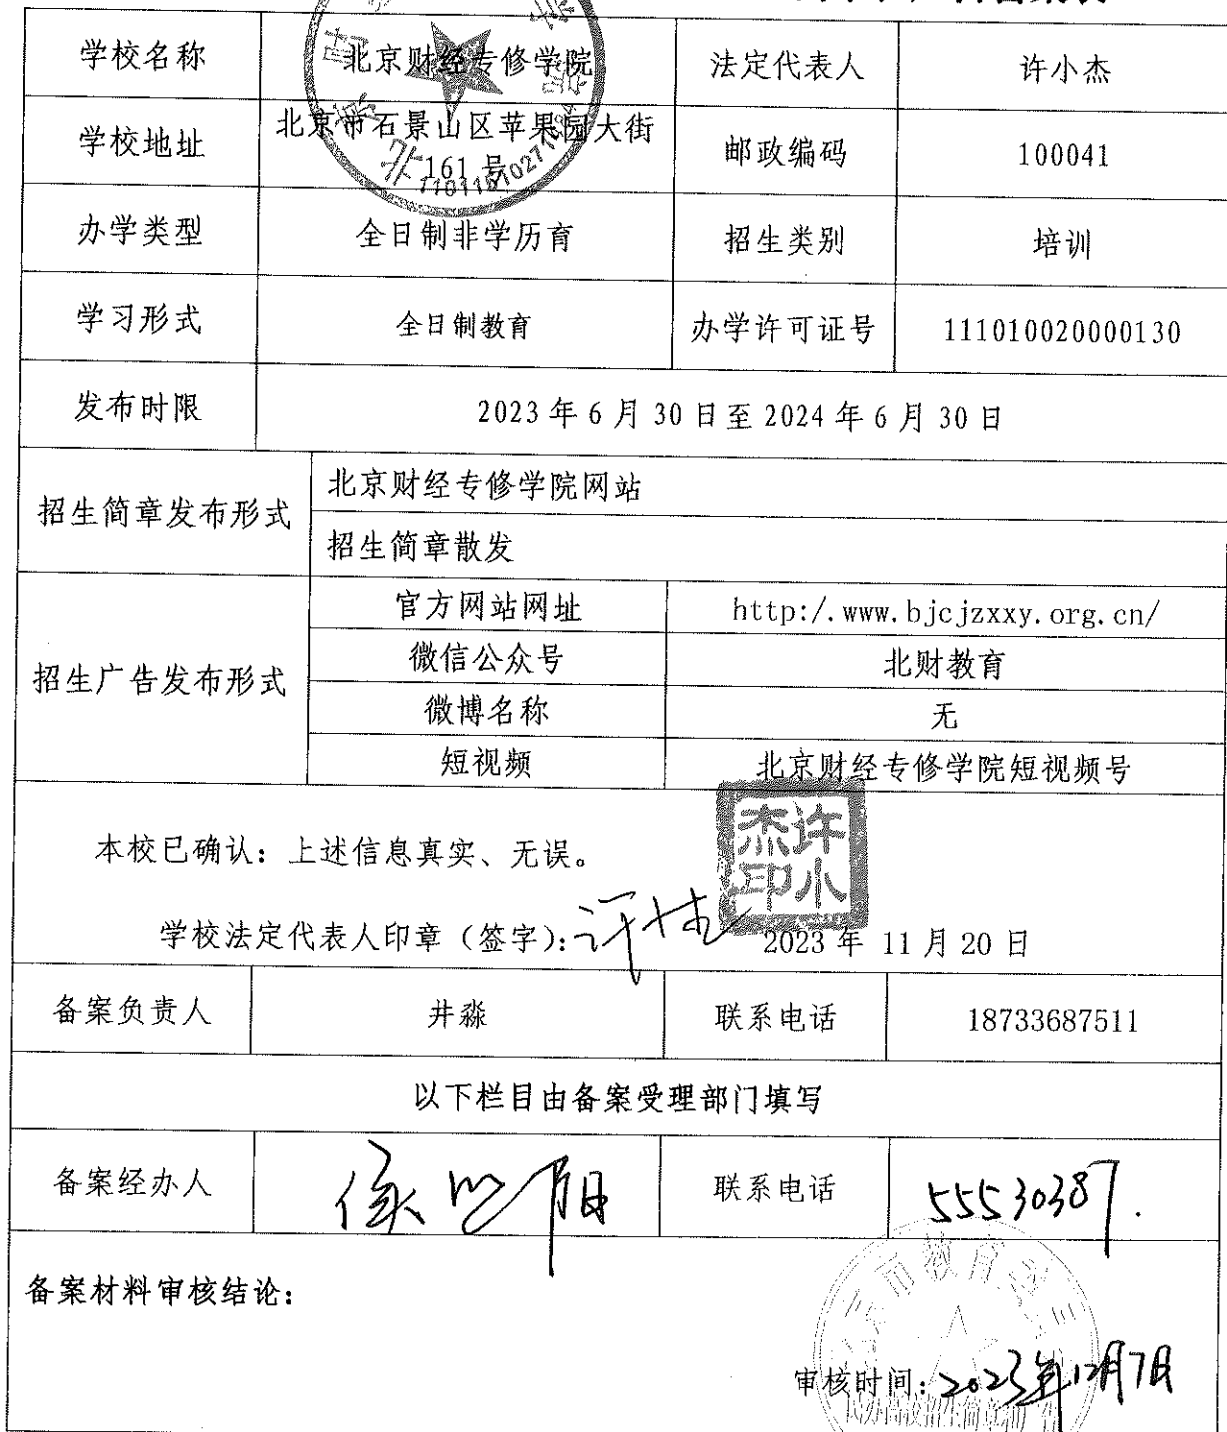 学校名称 北京财经专修学院 法定代表人 许小杰
学校地址 北京市石景山区苹果园大街
161 号 邮政编码 100041
办学类型 全日制非学历育 招生类别 培训
学习形式 全日制教育 办学许可证号 111010020000130
发布时限 2023 年 6 月 30 日至 2024 年 6 月 30 日
招生简章发布形式 北京财经专修学院网站
招生简章散发
招生广告发布形式 官方网站网址 http:/.www.bjcjzxxy.org.cn/
微信公众号 北财教育
微博名称 无
短视频 北京财经专修学院短视频号
本校已确认：上述信息真实、无误。
许小
杰印
学校法定代表人印章（签字）： 2023 年 11 月 20 日
备案负责人 井淼 联系电话 18733687511
以下栏目由备案受理部门填写
备案经办人 联系电话 55530387.
备案材料审核结论：
市教育
审核时间：2023年12月7日
民办高校招生简章和